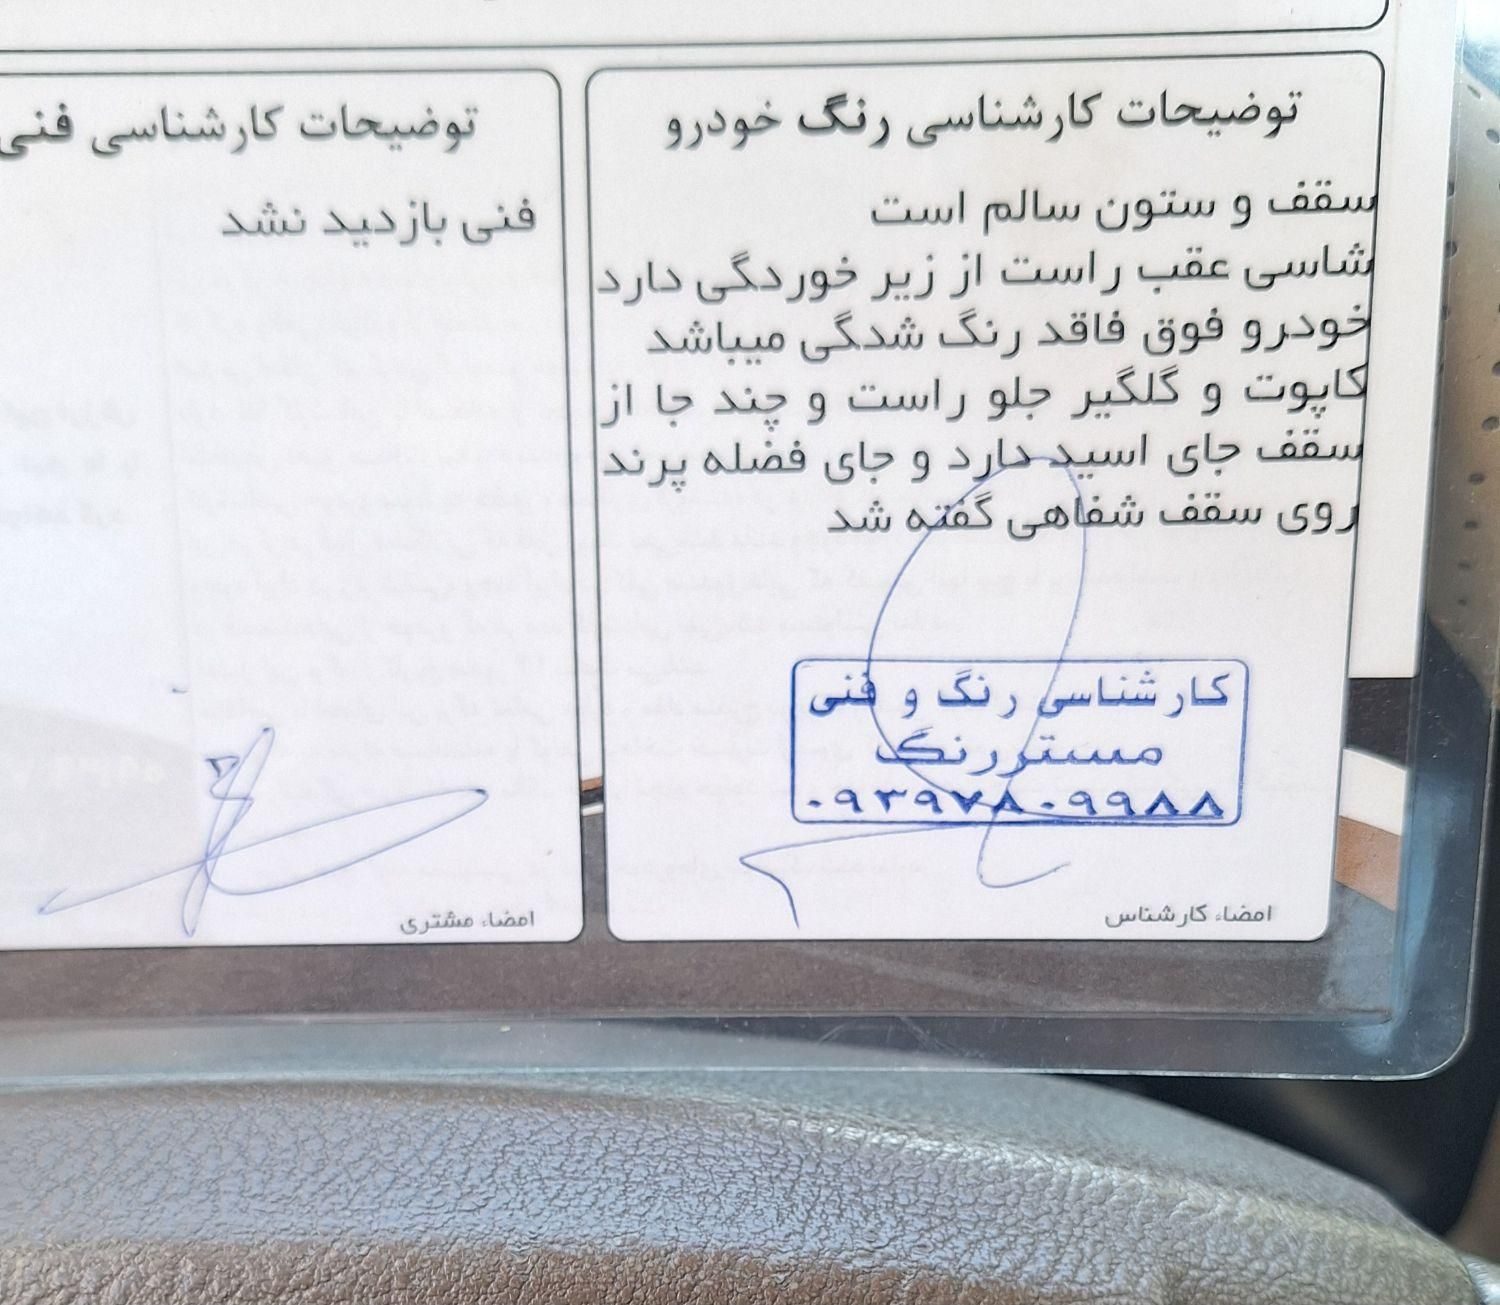 توضیحات کارشناسی رنگ خودرو
سقف و ستون سالم است
شاسی عقب راست از زیر خوردگی دارد
خودرو فوق فاقد رنگ شدگی میباشد
کاپوت و گلگیر جلو راست و چند جا از
سقف جای اسید دارد و جای فضله پرند
روی سقف شفاهی گفته شد
کارشناسی رنگ و فنی
مستررنگ
۰۹۳۹۷۸۰۹۹۸۸
امضاء کارشناس
توضیحات کارشناسی فنی
فنی بازدید نشد
امضاء مشتری